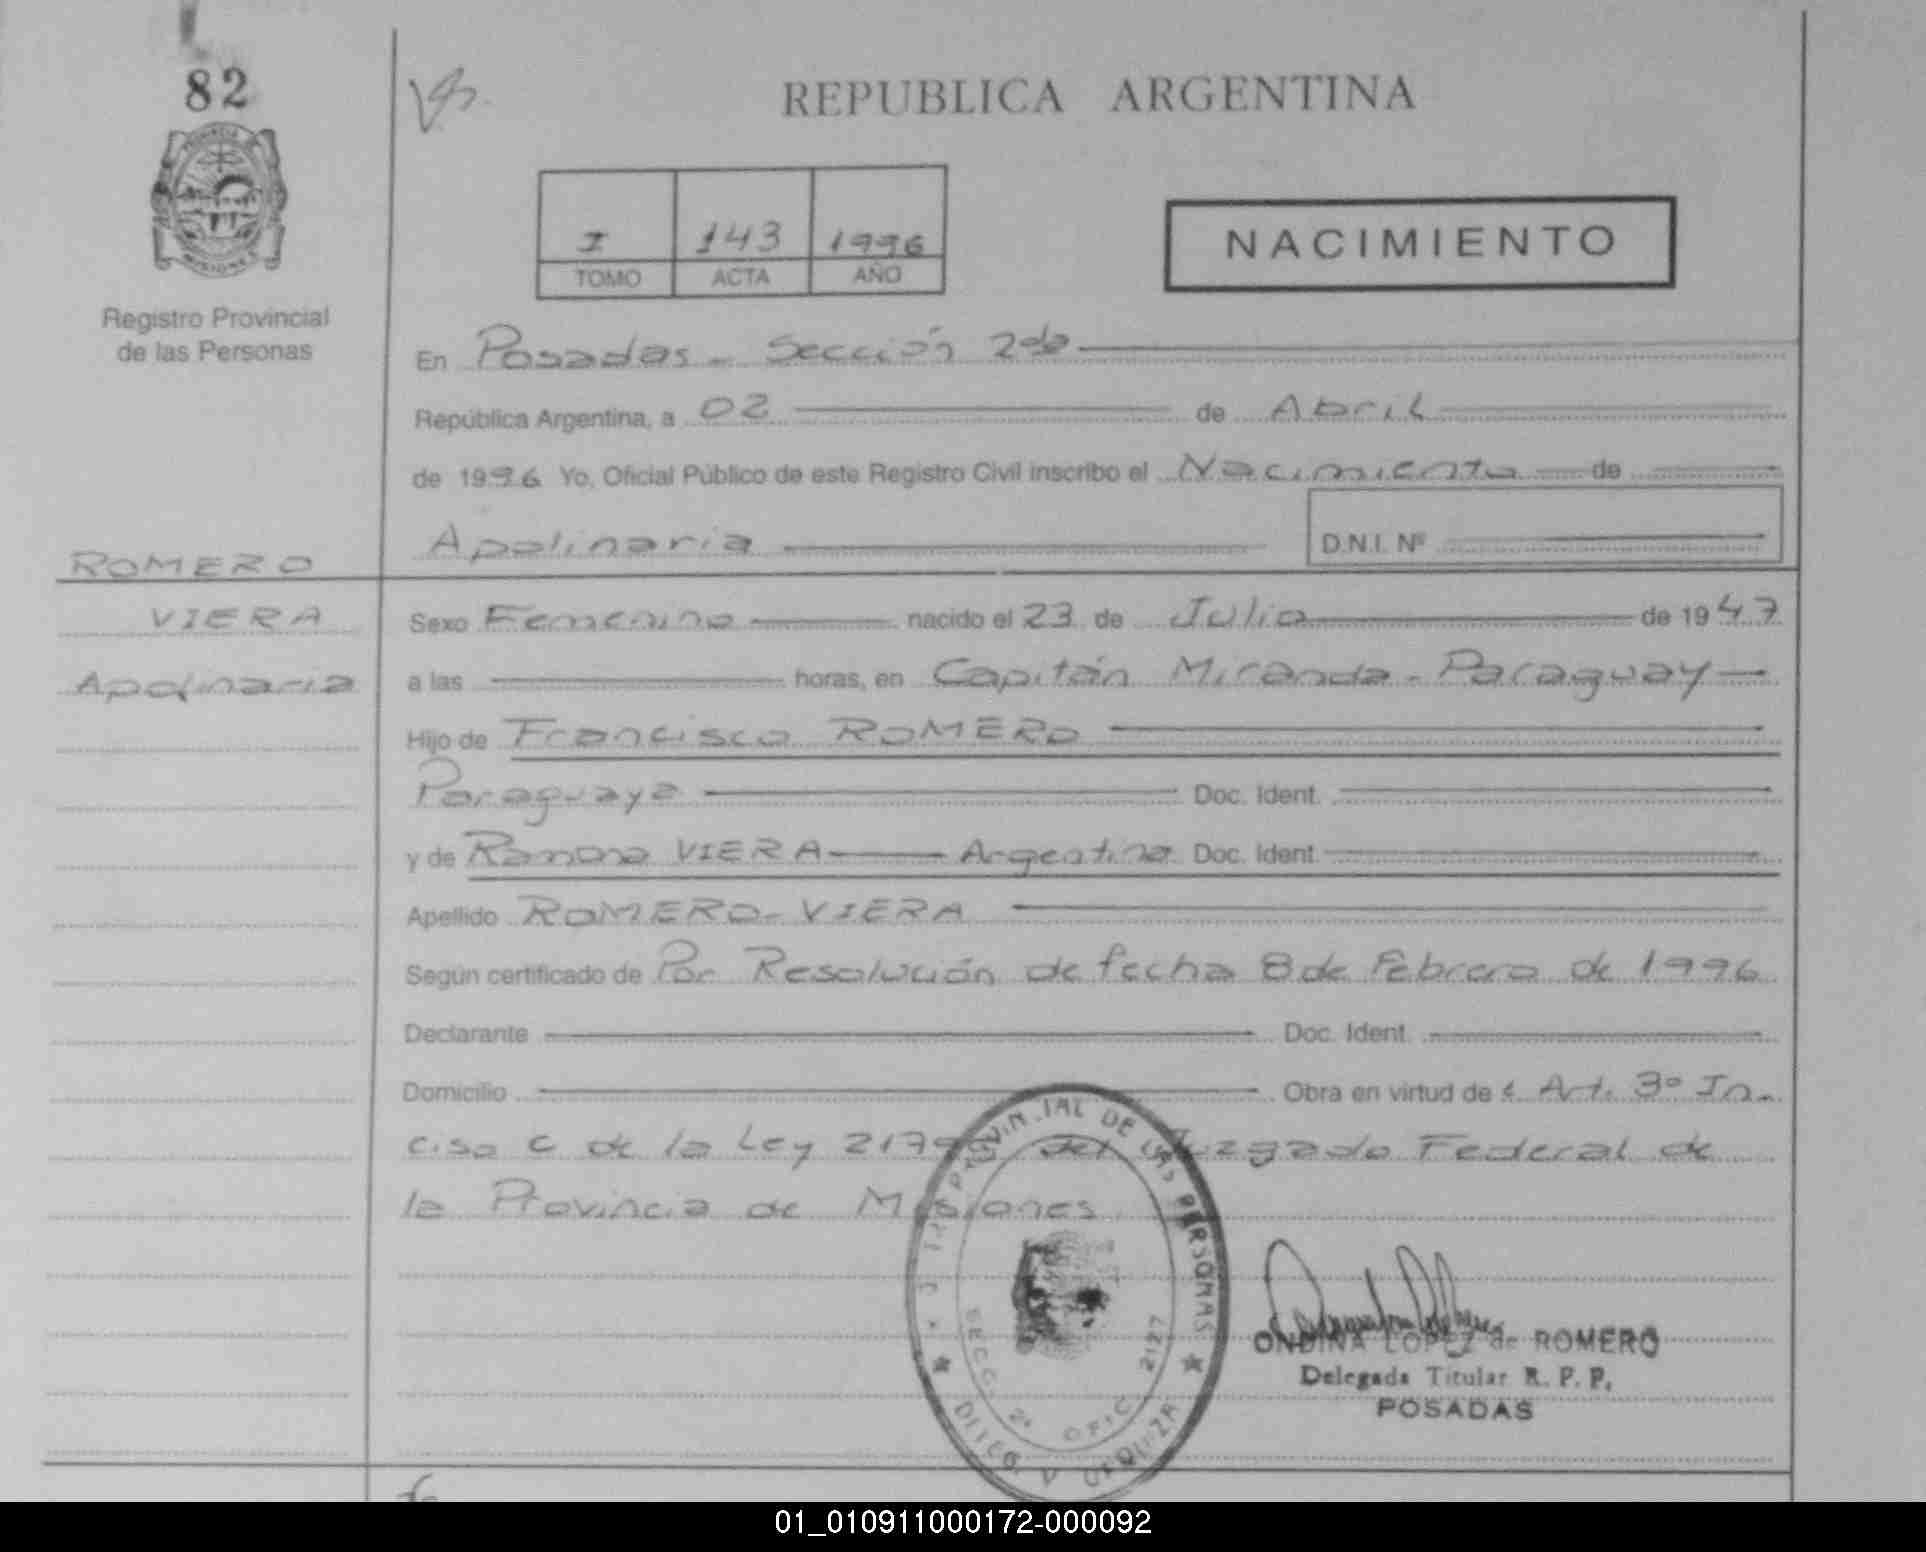 82
REPUBLICA ARGENTINA
PROVINCIA
MISIONES
Registro Provincial
de las Personas
I 143 1996
TOMO ACTA AÑO
NACIMIENTO
En Posadas - Sección 2da
República Argentina, a 02 de Abril
de 1996 Yo, Oficial Público de este Registro Civil inscribo el Nacimiento de
Apolinaria D.N.I. Nº
ROMERO
VIERA
Apolinaria
Sexo Femenino nacido el 23 de Julio de 1947
a las horas, en Capitán Miranda - Paraguay
Hijo de Francisco ROMERO
Paraguaya Doc. Ident.
y de Ramona VIERA Argentina Doc. Ident.
Apellido ROMERO - VIERA
Según certificado de Por Resolución de fecha 8 de Febrero de 1996
Declarante Doc. Ident.
Domicilio Obra en virtud de Art. 3º In-
ciso C de la Ley del Juzgado Federal de
la Provincia de Misiones
PROVINCIAL DE LAS PERSONAS
SECC. 2ª OFIC. 2127
ONDINA LOPEZ de ROMERO
Delegada Titular R. P. P.
POSADAS
01_010911000172-000092